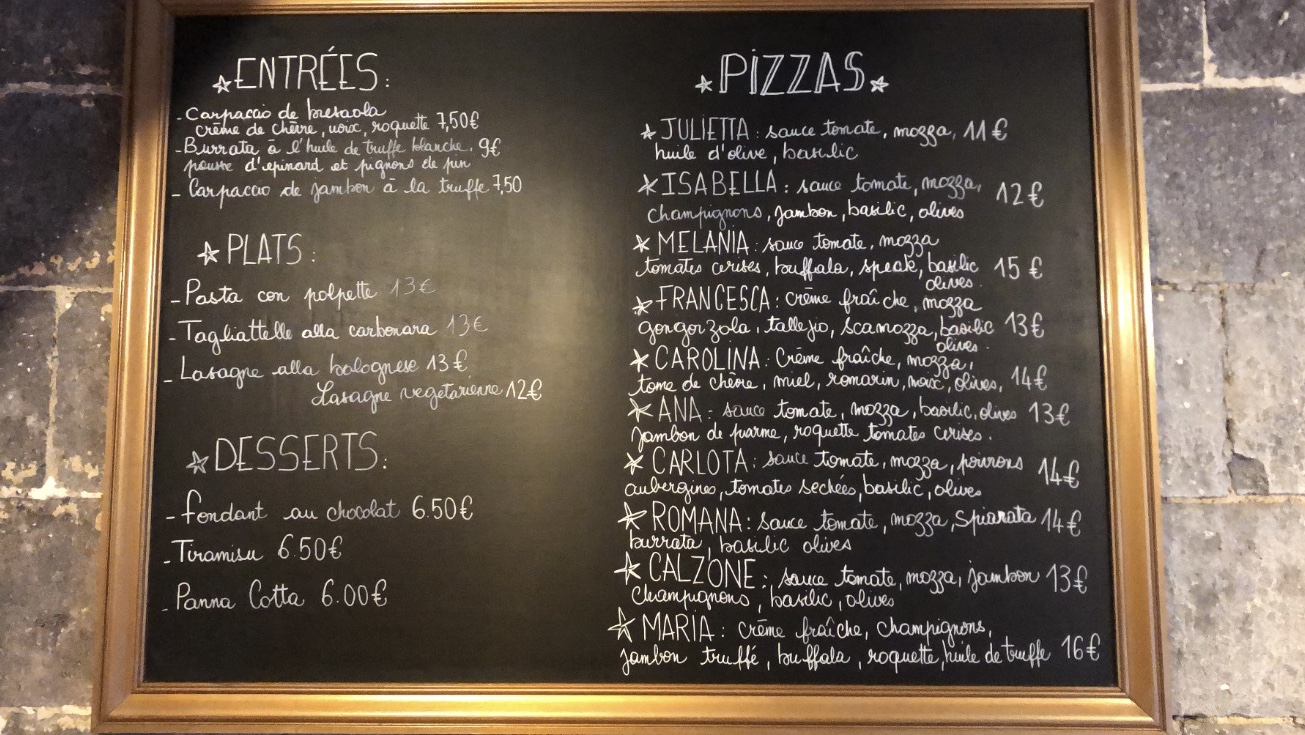 ENTRÉES:
- Carpaccio de bresaola
crème de chèvre, noix, roquette 7,50€
- Burrata à l'huile de truffe blanche, 9€
pousse d'epinard et pignons de pin
- Carpaccio de jambon à la truffe 7,50
PLATS:
- Pasta con polpette 13€
- Tagliattelle alla carbonara 13€
- Lasagne alla bolognese 13€
Lasagne vegetarienne 12€
DESSERTS:
- fondant au chocolat 6.50€
- Tiramisu 6.50€
- Panna Cotta 6.00€
PIZZAS
JULIETTA: sauce tomate, mozza, 11€
huile d'olive, basilic
ISABELLA: sauce tomate, mozza, 12€
champignons, jambon, basilic, olives
MELANIA: sauce tomate, mozza
tomates cerises, buffala, speak, basilic 15€
olives.
FRANCESCA: crème fraîche, mozza
gongonzola, tallejio, scamozza, basilic 13€
olives.
CAROLINA: Crème fraîche, mozza,
tome de chèvre, miel, romarin, noix, olives, 14€
ANA: sauce tomate, mozza, basilic, olives 13€
jambon de parme, roquette tomates cerises.
CARLOTA: sauce tomate, mozza, poivrons 14€
aubergines, tomates sechées, basilic, olives
ROMANA: sauce tomate, mozza, Spianata 14€
burrata, basilic olives
CALZONE: sauce tomate, mozza, jambon 13€
champignons, basilic, olives
MARIA: crème fraîche, champignons,
jambon truffé, buffala, roquette, huile de truffe 16€